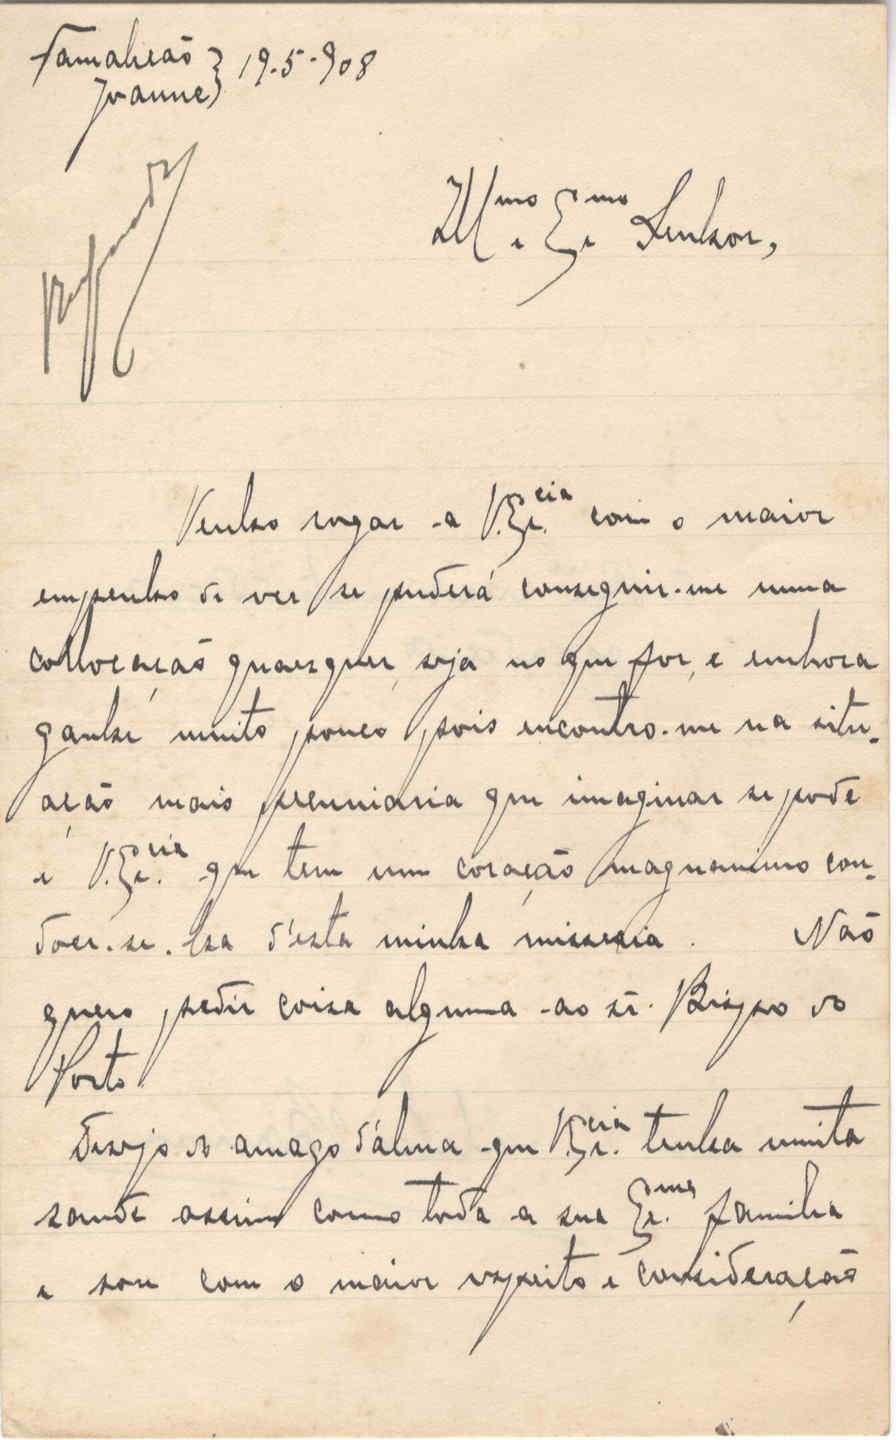 Famalicão
Joanne } 19-5-908
Respondida
Ill.mo e Ex.mo Senhor,
Venho rogar a V. Ex.cia com o maior
empenho de ver se puderá conseguir-me numa
collocação quaesquer, seja no que for, e embora
ganhe muito pouco pois encontro-me na situ-
ação mais pecuniaria que imaginar se pode
e V. Ex.cia que tem um coração magnanimo con-
doer-se-ha d'esta minha misseria. Não
quero pedir coisa alguma ao sr. Bispo do
Porto.
Desejo do amago d'alma que V. Ex.cia tenha muita
saude assim como toda a sua Ex.ma familia
e sou com o maior respeito e consideração